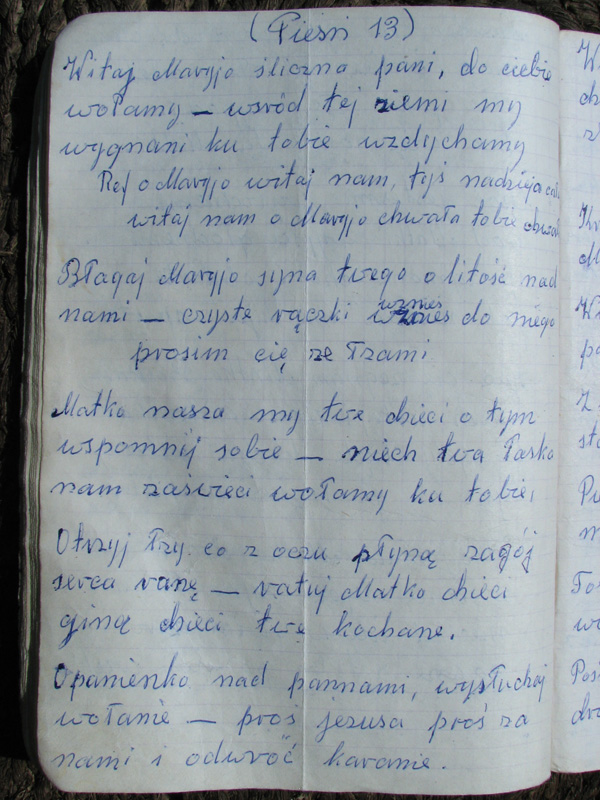 (Pieśń 13)
Witaj Maryjo śliczna pani, do ciebie
wołamy – wsród tej ziemi my
wygnani ku tobie wzdychamy
Ref o Maryjo witaj nam, tyś nadzieja
witaj nam o Maryjo chwała tobie
Błagaj Maryjo syna twego o litość nad
nami – czyste rączki wznieś do niego
prosim cię ze łzami
Matko nasza my twe dzieci o tym
wspomnij sobie – niech twa łaska
nam zaświeci wołamy ku tobie,
Otrzyj łzy co z oczu płyną zagój
serca ranę – ratuj Matko dzieci
giną dzieci twe kochane.
O panienko nad pannami, wysłuchaj
wołanie – proś jezusa proś za
nami i odwróć karanie.